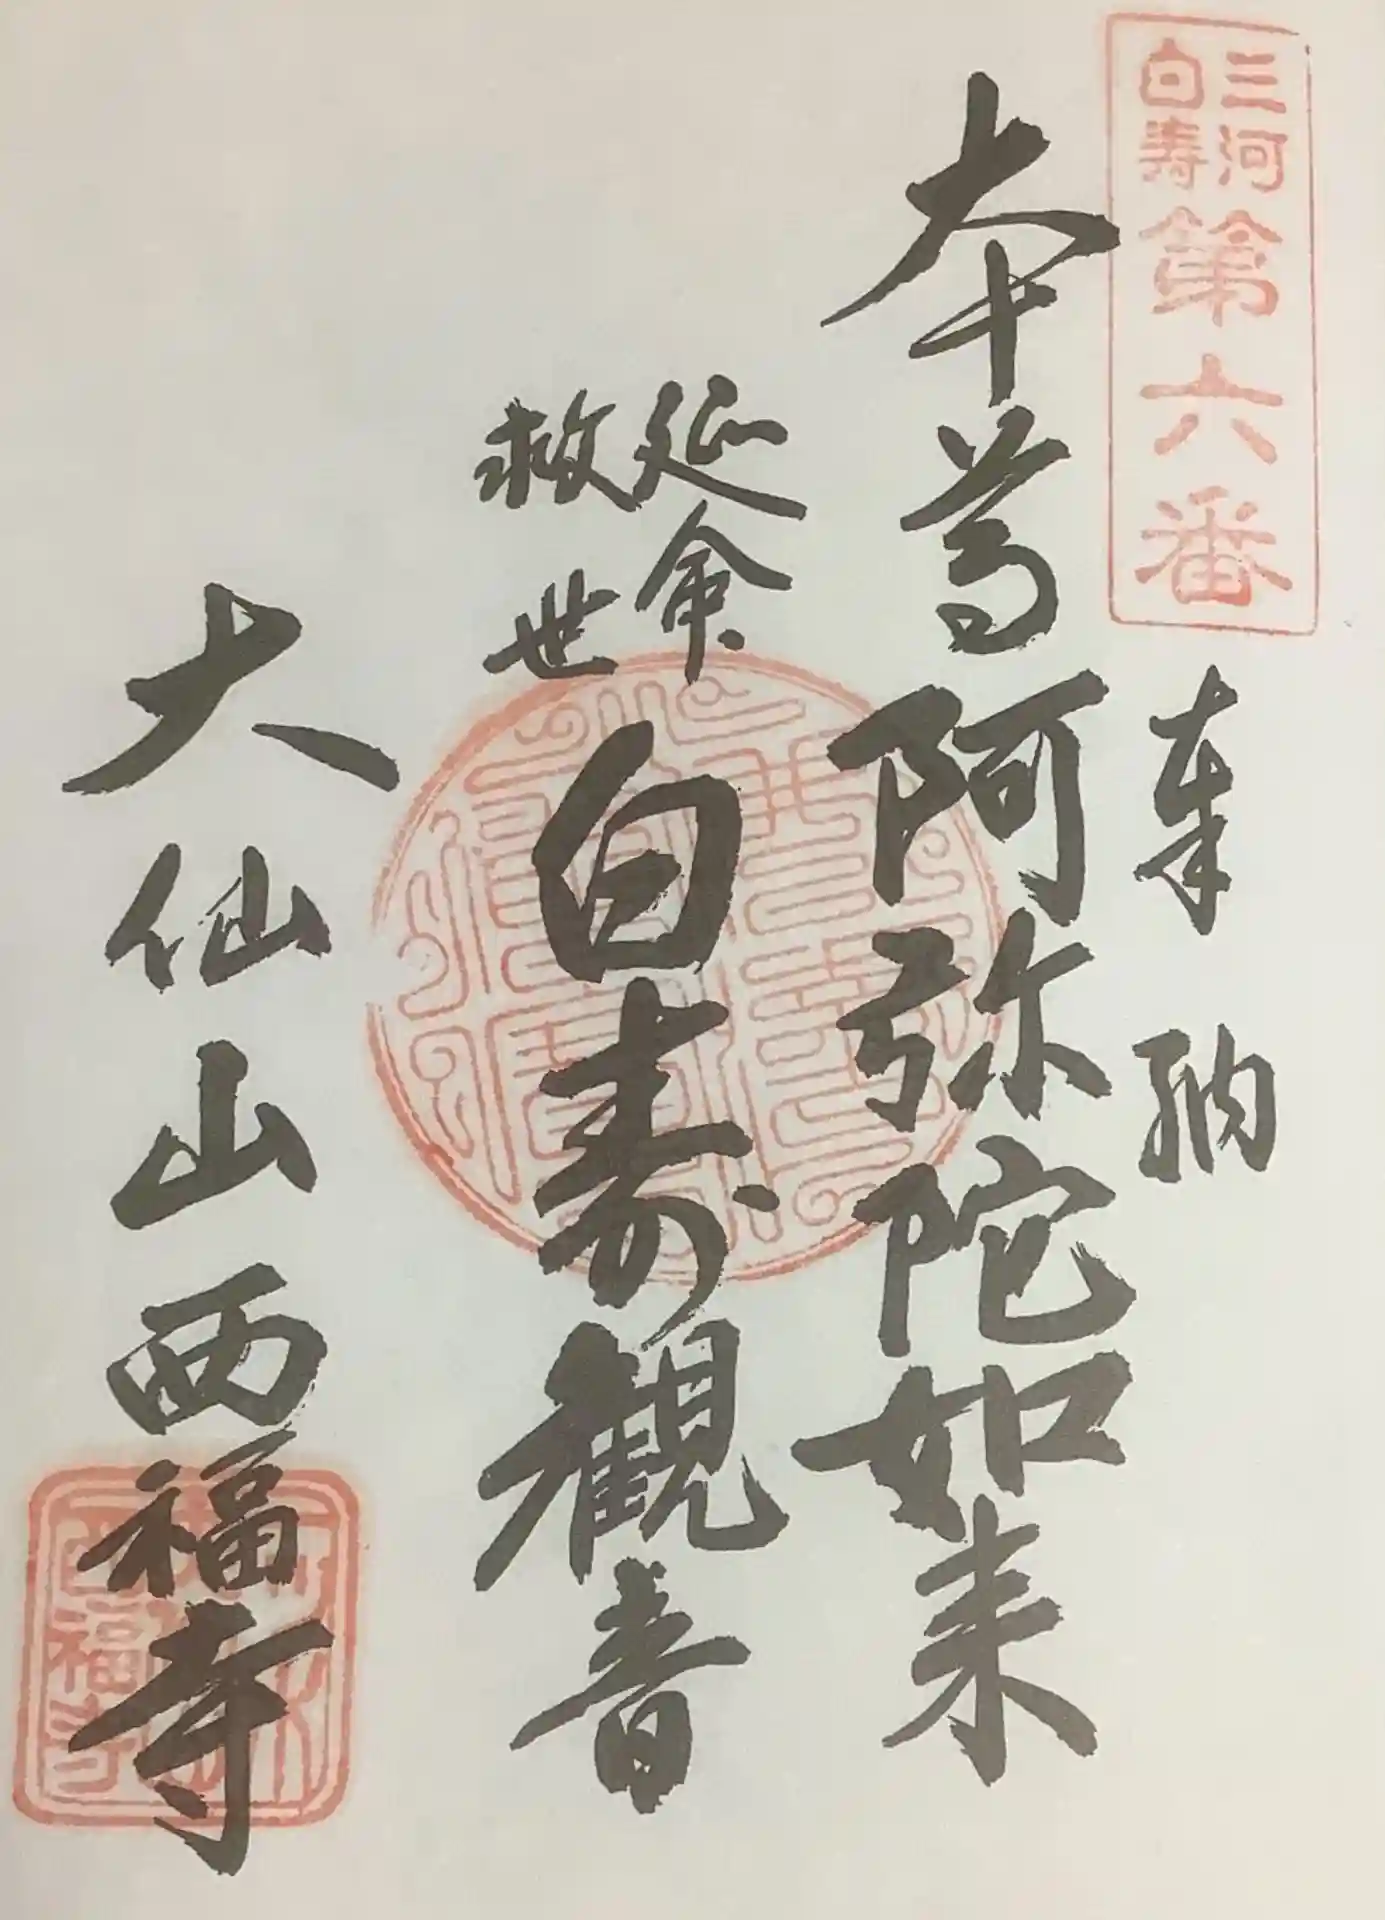 三河
白寿
第六番
奉納
本尊阿弥陀如来
延命
救世
白寿観音
大仙山西福寺
西福寺